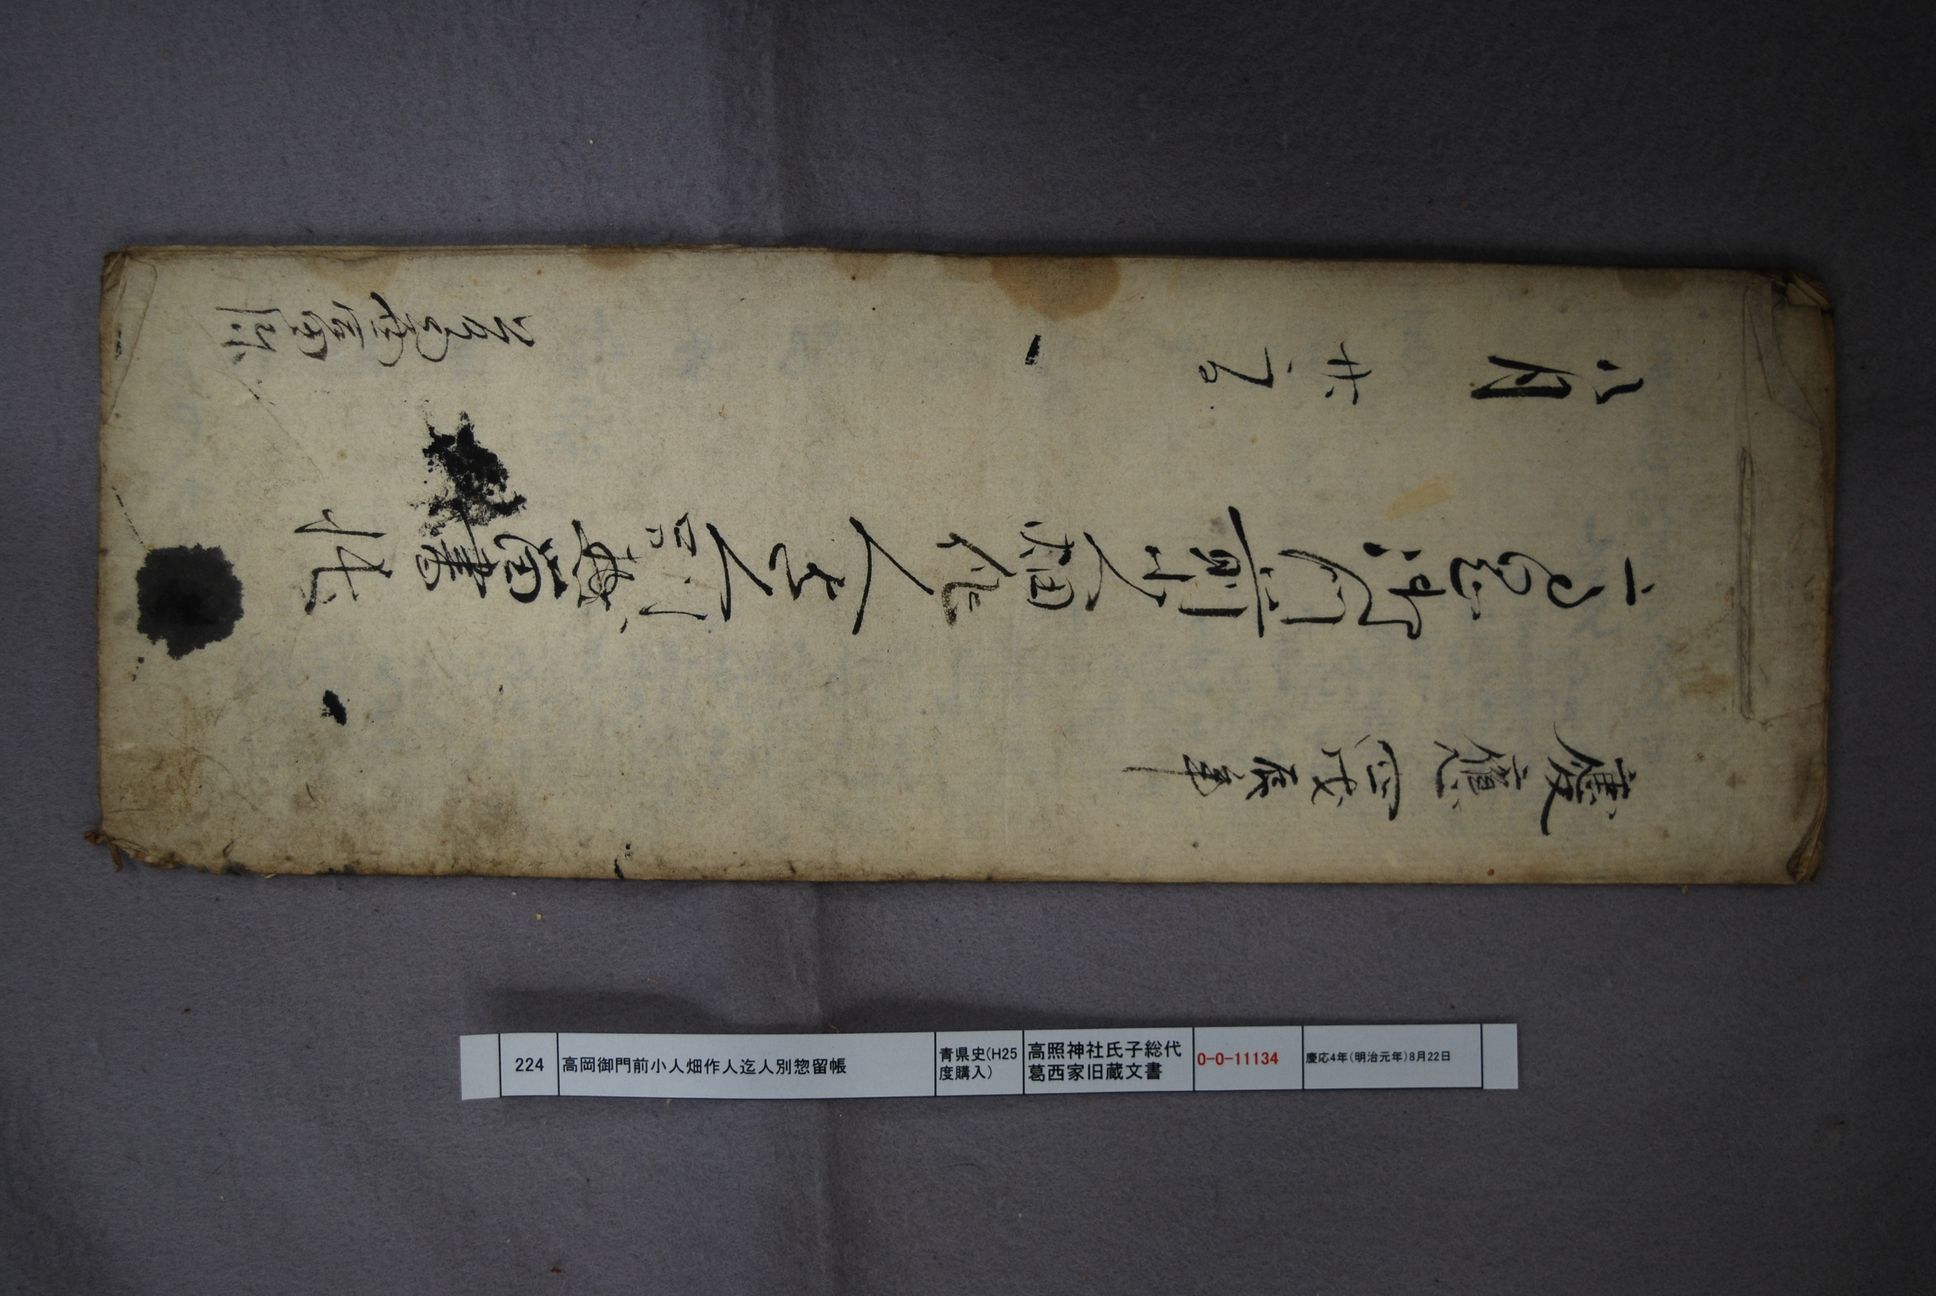 慶應四戊辰年
高岡御門前小人畑作人迄人別惣留書帳
八月廿二日
224
高岡御門前小人畑作人迄人別惣留帳
青県史(H25
度購入)
高照神社氏子総代
葛西家旧蔵文書
0-0-11134
慶応4年(明治元年)8月22日